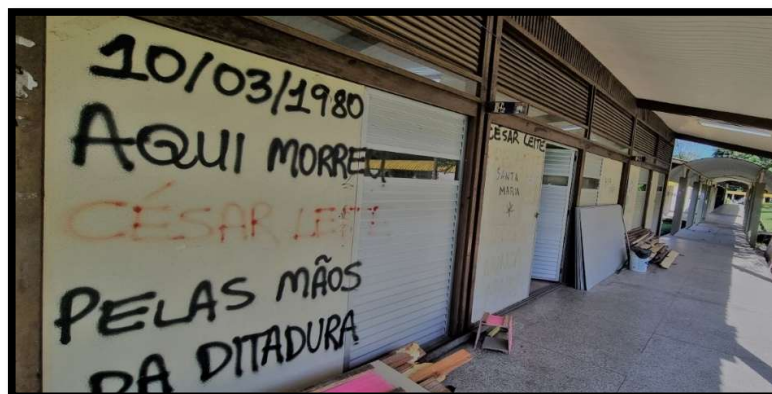 10/03/1980
AQUI MORREU
CÉSAR LEITE
PELAS MÃOS
DA DITADURA
CÉSAR LEITE
SANTA
MARIA